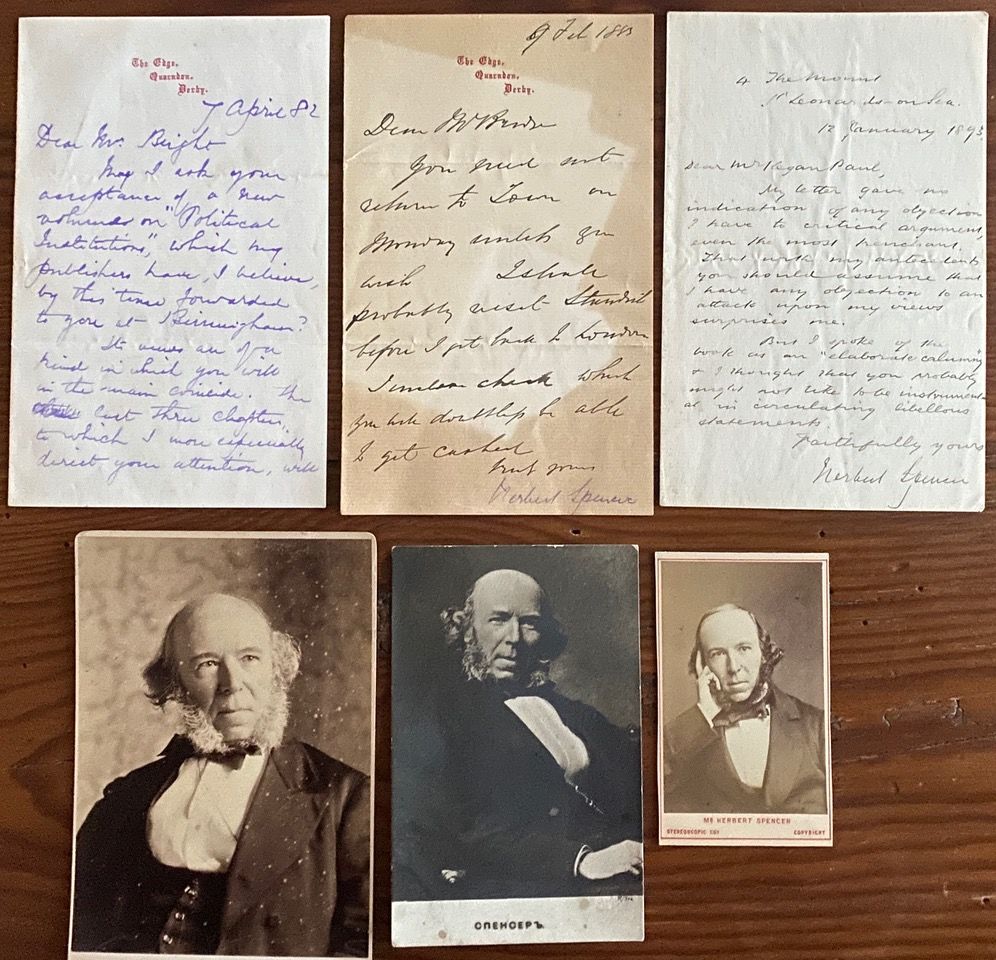 The Edge,
Quarndon,
Derby.
7 April 82
Dear Mr. Bright
May I ask your
acceptance of a new
volume on "Political
Institutions", which my
publishers have, I believe,
by this time forwarded
to you at Birmingham?
Its views are of a
kind in which you will
in the main coincide. The
last three chapters,
to which I more especially
direct your attention, will
9 Feb 188
The Edge,
Quarndon,
Derby.
Dear Mr
You need not
return to Town on
Monday unless you
wish I shall
probably visit Standish
before I get back to London
I enclose check which
you will doubtless be able
to get cashed
truly yours
Herbert Spencer
4 The Mount
St Leonards-on-Sea.
12 January 1895
Dear Mr Kegan Paul,
My letter gave no
indication of any objection
I have to critical argument,
even the most trenchant.
That with my antecedents
you should assume that
I have any objection to an
attack upon my views
surprises me.
But I spoke of the
book as an "elaborate calumny"
& I thought that you probably
might not like to be instrumental
in circulating libellous
statements
Faithfully yours
Herbert Spencer
СПЕНСЕРЪ.
MR HERBERT SPENCER
STEREOSCOPIC COY COPYRIGHT